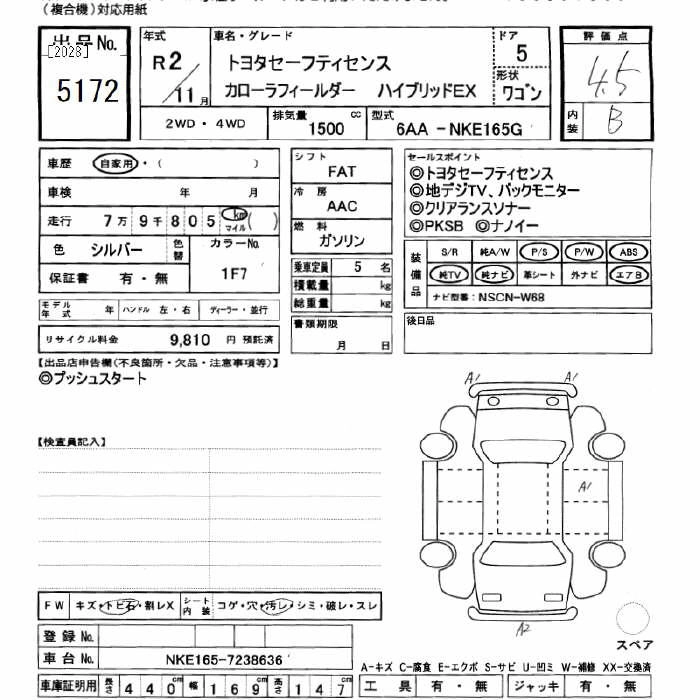 (複合機)対応用紙
出品No. [2028] 5172
年式 R2/11月
車名・グレード トヨタセーフティセンス
カローラフィールダー ハイブリッドEX
ドア 5
形状 ワゴン
評価点 4.5
内装 B
2WD・4WD
排気量 1500 cc
型式 6AA -NKE165G
車歴 自家用・( )
車検 年 月
走行 7万9千805 km マイル ( )
色 シルバー 色替 カラーNo. 1F7
保証書 有・無
モデル年式 年 ハンドル 左・右 ディーラー・並行
リサイクル料金 9,810 円 預託済
シフト FAT
冷房 AAC
燃料 ガソリン
乗車定員 5 名
積載量 kg
総重量 kg
書類期限 月 日
セールスポイント
◎トヨタセーフティセンス
◎地デジTV、バックモニター
◎クリアランスソナー
◎PKSB ◎ナノイー
装備品 S/R 純A/W P/S P/W ABS
純TV 純ナビ 革シート 外ナビ エアB
ナビ型番:NSCN-W68
後日品
【出品店申告欄(不良箇所・欠品・注意事項等)】
◎プッシュスタート
A1 A1
A1
A2
【検査員記入】
FW キズ・トビ石・割レX シート内装 コゲ・穴・汚レ・シミ・破レ・スレ
登録No.
車台No. NKE165-7238636
スペア
A-キズ C-腐食 E-エクボ S-サビ U-凹ミ W-補修 XX-交換済
車庫証明用 長さ 440cm 幅 169cm 高さ 147cm
工具 有・無 ジャッキ 有・無